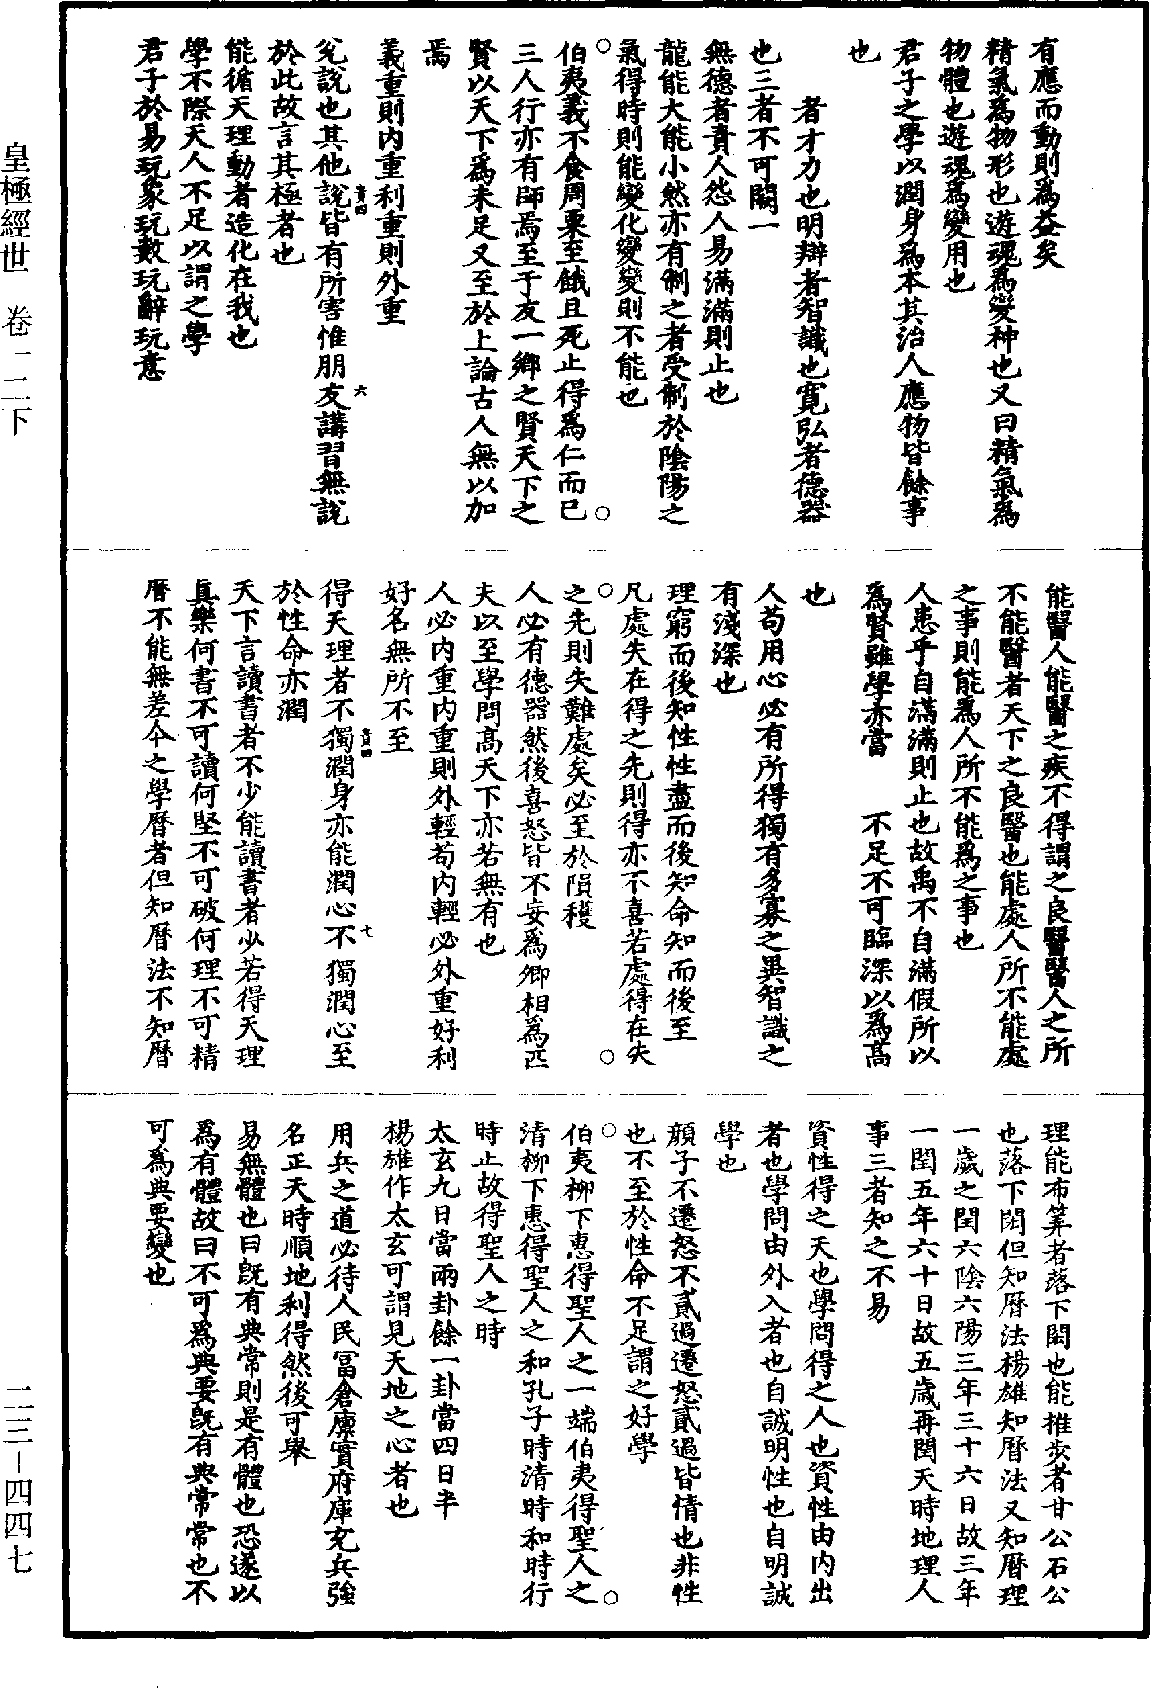 有應而動則為益矣
精氣為物形也遊魂為變神也又曰精氣為
物體也遊魂為變用也
君子之學以潤身為本其治人應物皆餘事
也
者才力也明辯者智識也寬弘者德器
也三者不可闕一
無德者責人怨人易滿滿則止也
龍能大能小然亦有制之者受制於陰陽之
氣得時則能變化變變則不能也
伯夷義不食周粟至餓且死止得為仁而已
三人行亦有師焉至于友一鄉之賢天下之
賢以天下為未足又至於上論古人無以加
焉
義重則內重利重則外重
兊說也其他說皆有所害惟朋友講習無說
於此故言其極者也
能循天理動者造化在我也
學不際天人不足以謂之學
君子於易玩象玩數玩辭玩意
能醫人能醫之疾不得謂之良醫醫人之所
不能醫者天下之良醫也能處人所不能處
之事則能為人所不能為之事也
人患乎自滿滿則止也故禹不自滿假所以
為賢雖學亦當　不足不可臨深以為高
也
人苟用心必有所得獨有多寡之異智識之
有淺深也
理窮而後知性性盡而後知命命知而後知至
凡處失在得之先則得亦不喜若處得在失
之先則失難處矣必至於隕穫
人必有德器然後喜怒皆不妄為卿相為匹
夫以至學問高天下亦若無有也
人必內重內重則外輕苟內輕必外重好利
好名無所不至
得天理者不獨潤身亦能潤心不獨潤心至
於性命亦潤
天下言讀書者不少能讀書者少若得天理
真樂何書不可讀何堅不可破何理不可精
曆不能無差今之學曆者但知曆法不知曆
理能布筭者落下閎也能推步者甘公石公
也落下閎但知曆法楊雄知曆法又知曆理
一歲之閏六陰六陽三年三十六日故三年
一閏五年六十日故五歲再閏天時地理人
事三者知之不易
資性得之天也學問得之人也資性由內出
者也學問由外入者也自誠明性也自明誠
學也
顏子不遷怒不貳過遷怒貳過皆情也非性
也不至於性命不足謂之好學
伯夷柳下惠得聖人之一端伯夷得聖人之
清柳下惠得聖人之和孔子時清時和時行
時止故得聖人之時
太玄九日當兩卦餘一卦當四日半
楊雄作太玄可謂見天地之心者也
用兵之道必待人民冨倉廩實府庫充兵強
名正天時順地利得然後可舉
易無體也曰既有典常則是有體也恐遂以
為有體故曰不可為典要既有典常常也不
可為典要變也
皇極經世　卷一二下
二三－四四七